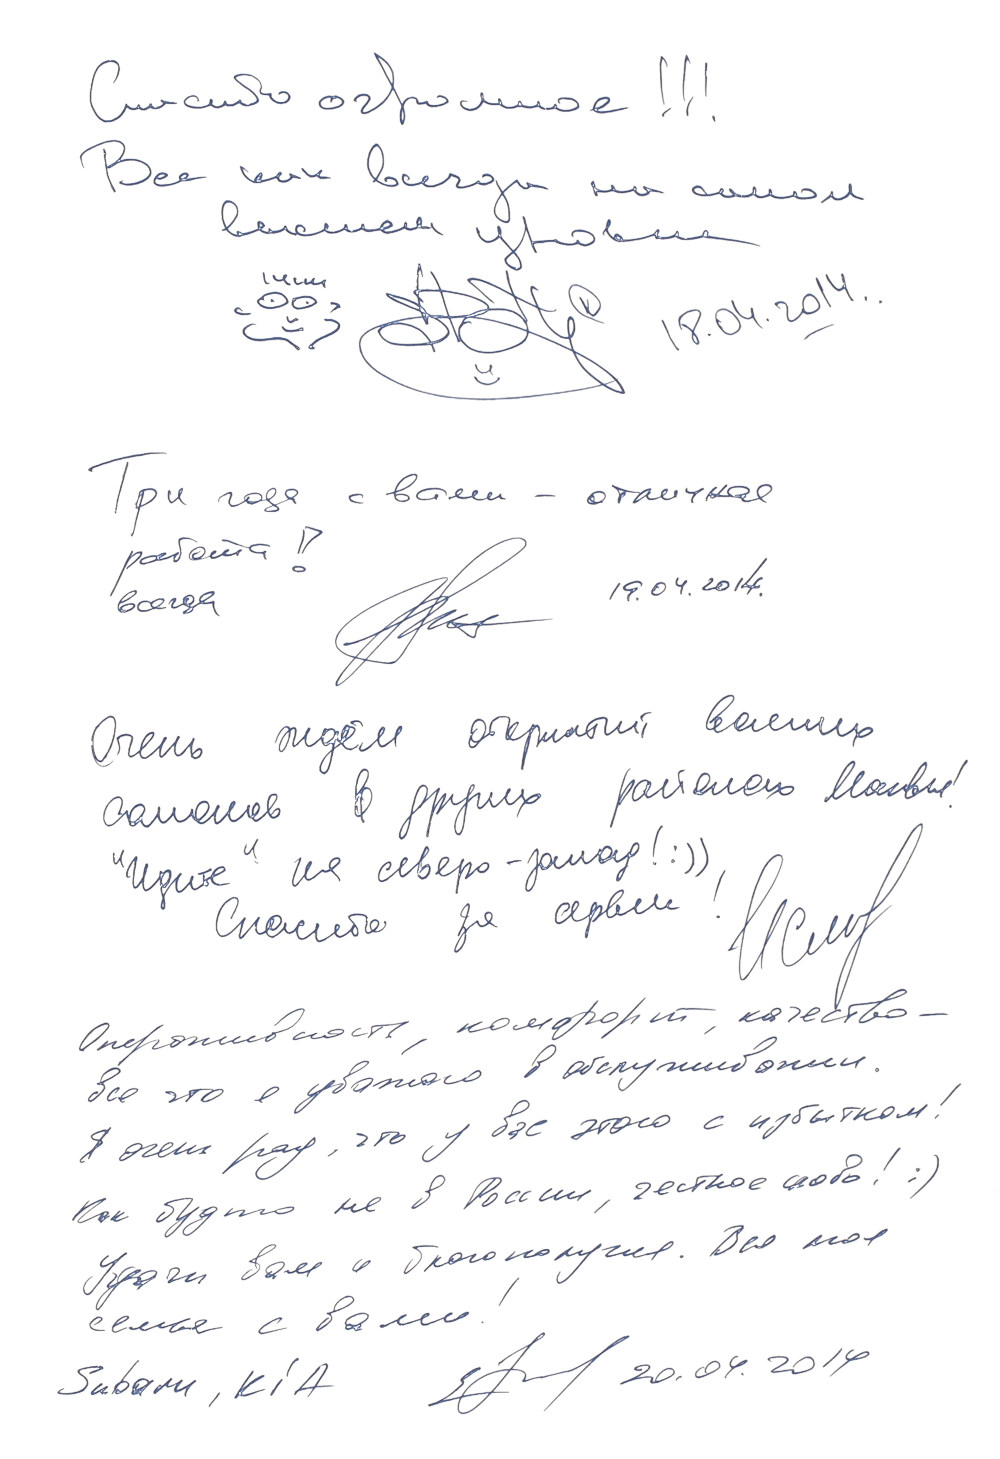 Спасибо огромное !!!
Все как всегда на самом
высшем уровне
18.04.2014..
Три года с вами – отличная
работа!
всегда
19.04.2014.
Очень ждём открытий ваших
салонов в других районах Москвы!
"Идите" на северо-запад! :))
Спасибо за сервис!
Оперативность, комфорт, качество –
все это я уважаю в обслуживании.
Я очень рад, что у вас этого с избытком!
Как будто не в России, честное слово! :)
Удачи вам и благополучия. Вся моя
семья с вами!
Subaru, KIA
20.04.2014